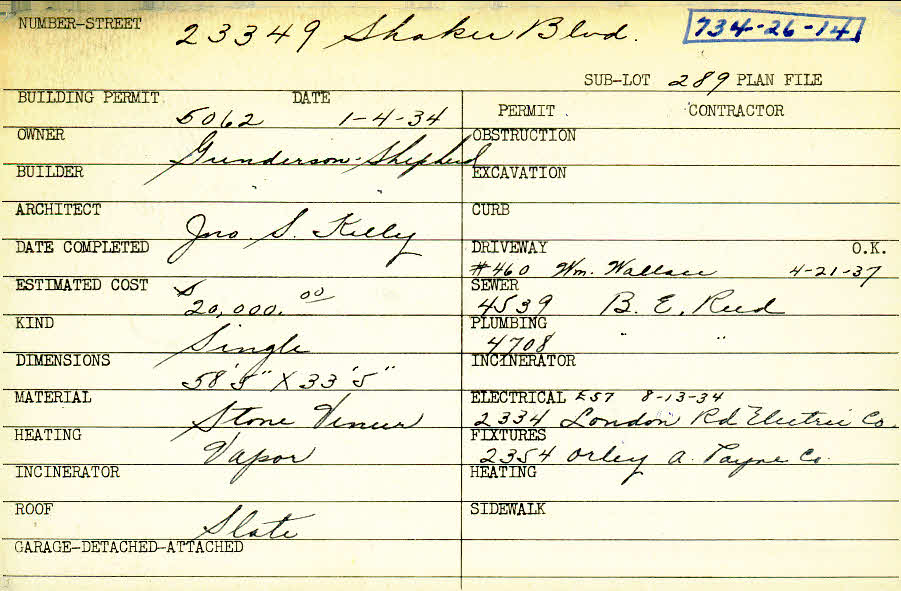 NUMBER-STREET 23349 Shaker Blvd. 734-26-14
SUB-LOT 289 PLAN FILE
BUILDING PERMIT 5062 DATE 1-4-34
OWNER Gunderson-Shepherd
BUILDER " "
ARCHITECT Jno. S. Kelly
DATE COMPLETED
ESTIMATED COST $20,000.00
KIND Single
DIMENSIONS 58'5" X 33'5"
MATERIAL Stone Veneer
HEATING Vapor
INCINERATOR
ROOF Slate
GARAGE-DETACHED-ATTACHED
PERMIT CONTRACTOR
OBSTRUCTION
EXCAVATION
CURB
DRIVEWAY O.K.
#460 Wm. Wallace 4-21-37
SEWER
4539 B. E. Reed
PLUMBING
4708 " "
INCINERATOR
ELECTRICAL E57 8-13-34
2334 London Rd Electric Co.
FIXTURES
2354 Orley A. Payne Co.
HEATING
SIDEWALK